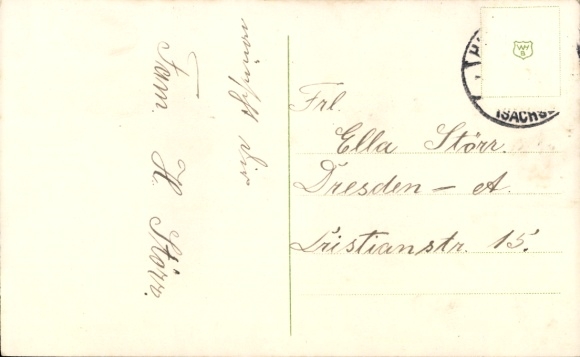 wünscht dir
Fam. K. Störr.
Frl.
Ella Störr.
Dresden – A.
Cristianstr. 15.
(SACHS
WH
S